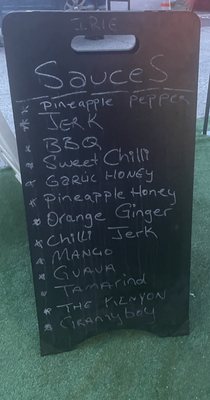 I.RIE
SauceS
* Pineapple Pepper
* JERK
* BBQ
* Sweet Chilli
* Garlic Honey
* Pineapple Honey
* Orange Ginger
* Chilli Jerk
* MANGO
* GUAVA
* Tamarind
* THE
* Grannyboy